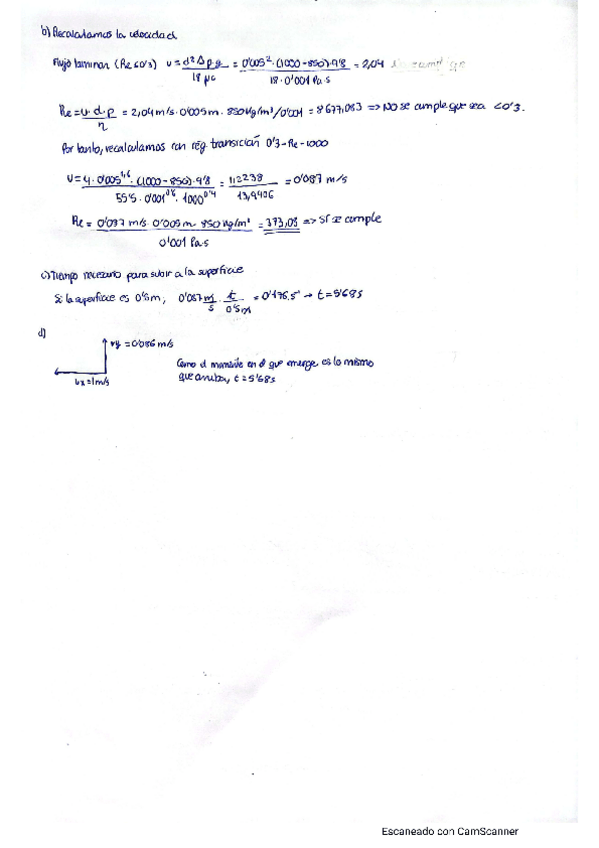 b) Recalculamos la velocidad
Flujo laminar (Re<0'3) v = d² Δρ g / 18 μc = 0'005² · (1000-850) · 9'8 / 18 · 0'001 Pa·s = 2,04
Re = v·d·ρ / η = 2,04 m/s · 0'005 m · 850 kg/m³ / 0'001 = 8677,083 => NO se cumple que sea <0'3.
Por tanto, recalculamos con rég. transición 0'3-Re-1000
= 0'087 m/s
Re = 0'087 m/s · 0'005 m · 850 kg/m³ / 0'001 Pa·s = 373,03 => SÍ se cumple
c) Tiempo necesario para subir a la superficie
Si la superficie es 0'5 m, 0'087 m/s · t / 0'5 m → t = 5'68 s
d)
vy = 0'086 m/s
vx = 1 m/s
Como el momento en el que emerge, es lo mismo
que arriba, t = 5'68 s
Escaneado con CamScanner